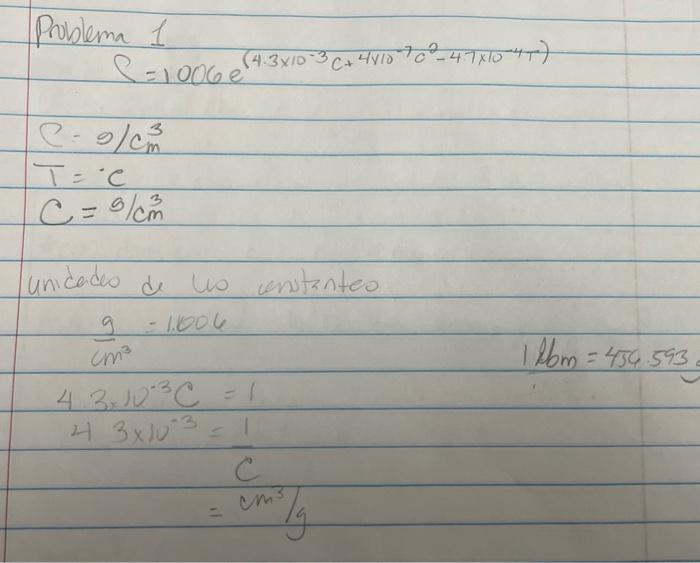 Problema 1
ρ = 1.006 e^(4.3x10^-3 C + 4x10^-7 C^2 - 4.7x10^-4 T)
ρ = g/cm^3
T = °C
C = g/cm^3
unidades de las constantes
g/cm^3 = 1.006
1 lbm = 454.593
4.3x10^-3 C = 1
4 3x10^-3 = 1/C
= cm^3/g